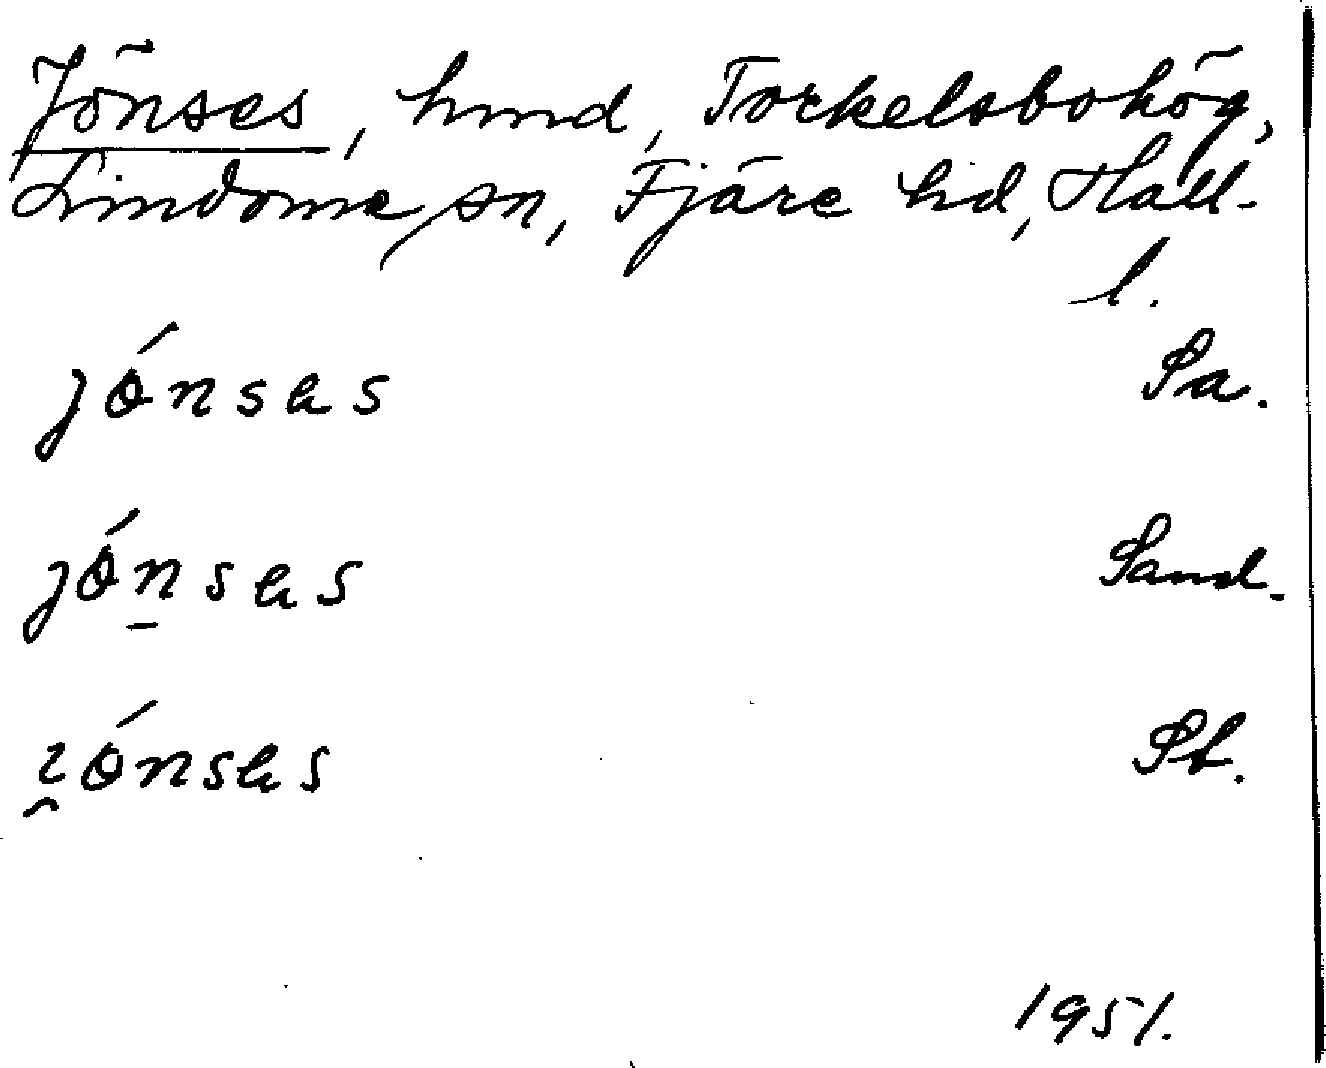 Jönses, hmd, Torkelsbohög,
Lindome sn, Fjäre hd, Hall-
l.
jónsas Sa.
jónsas Sand.
ɩónsas St.
1951.